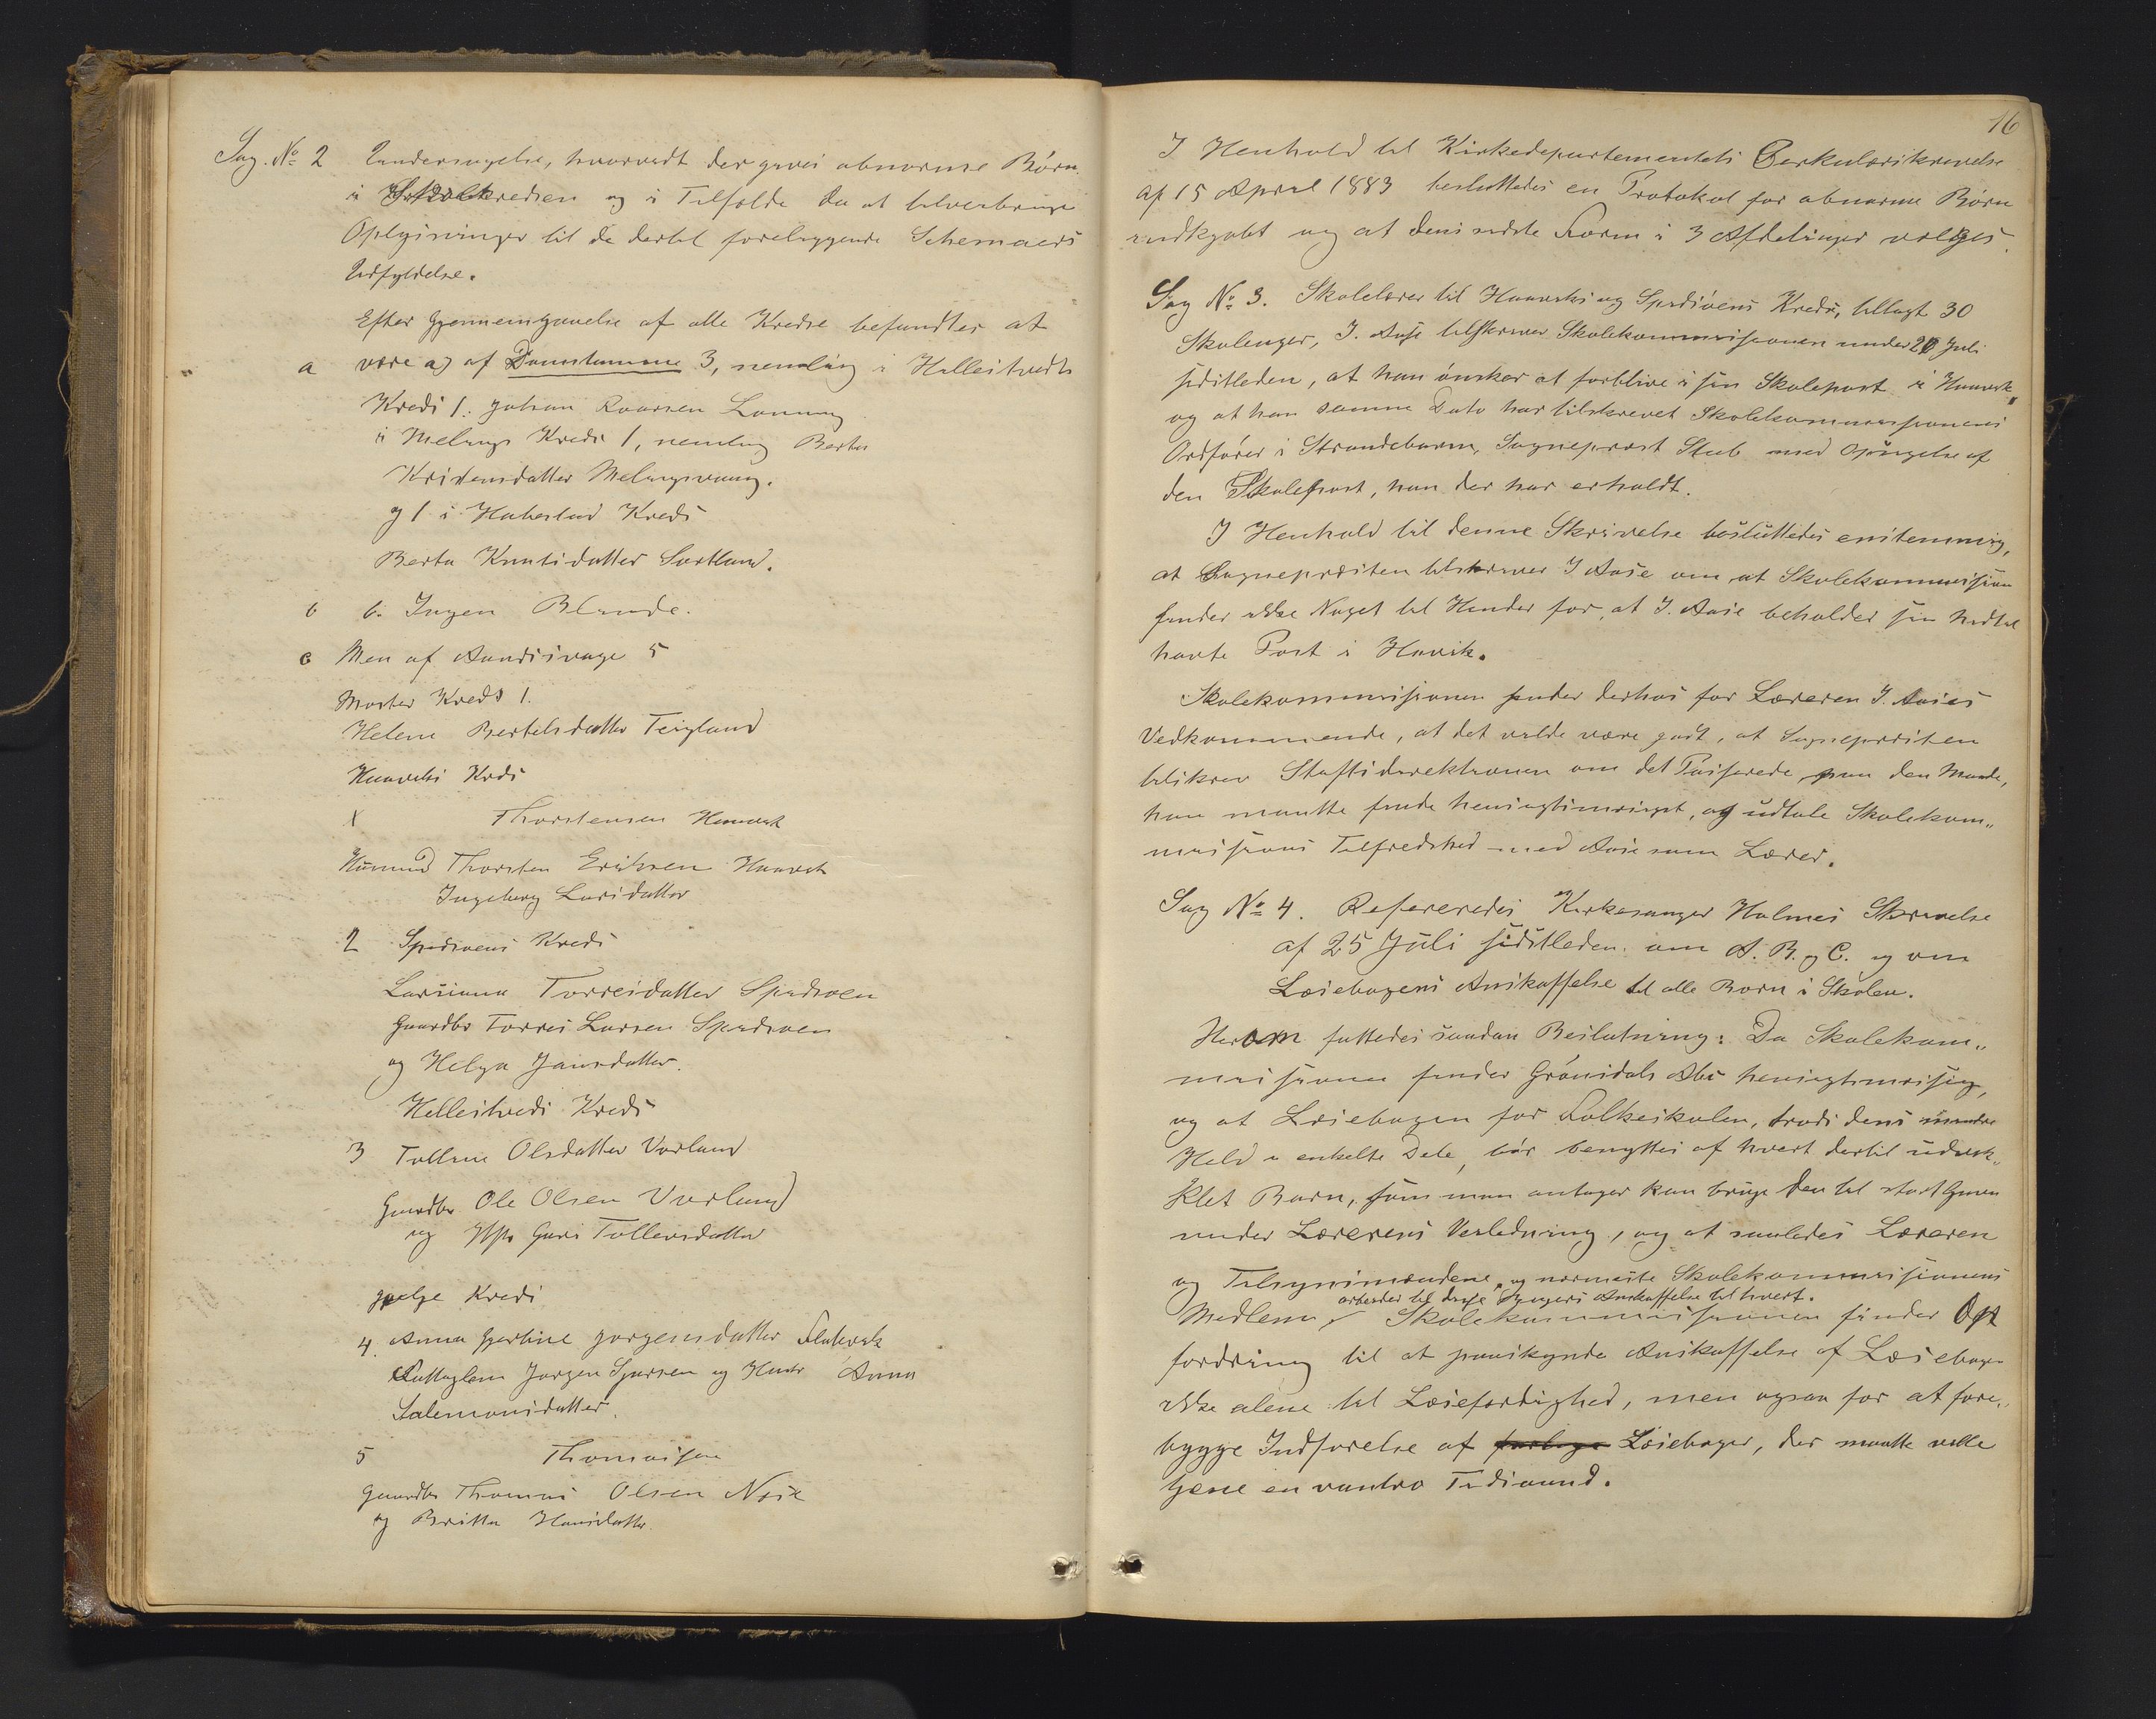 Sag. No 2 Undersøgelse, hvorvidt der gives abnorme Børn
i Skolekredsen og i Tilfælde da at tilveiebringe
Oplysninger til de dertil foreliggende Schemaers
Udfyldelse.
Efter Gjennemgaaelse af alle Kredse befandtes at
a være a) af Døvstumme 3, nemlig i Helleitvedts
Kreds 1. Johan Roarsen Lonning
i Melings Kreds 1, nemlig Berta
Kristensdatter Melingsvaag.
og 1 i Habestad Kreds
Berta Knutsdatter Sortland.
b b. Ingen Blinde.
c Men af Aandssvage 5
Moster Kreds 1.
Helene Bertelsdatter Teigland
Haaviks Kreds
1 Thorstensen Haavik
Husmand Thorsten Eriksen Haavik
Ingeborg Larsdatter
2 Spidsøens Kreds
Larsiana Torresdatter Spidsøen
Gaardbr Torres Larsen Spidsøen
og Helga Jansdatter.
Helleitveds Kreds
3 Tolline Olsdatter Vorland
Gaardbr. Ole Olsen Vorland
og Guri Tollevsdatter
Kreds
4. Anna Gjertine Jørgensdatter
Jørgen Sjursen og Hustr Anna
Salemonsdatter.
5 Thomassen
Gaardbr Thomas Olsen
og Britta Hansdatter.
16
I Henhold til Kirkedepartementets Cirkulærskrivelse
af 15 April 1883 besluttedes en Protokol for abnorme Børn
indkjøbt og at dens sidste Form i 3 Afdelinger vælges.
Sag No 3. Skolelærer til Haaviks og Spidsøens Kreds, tillagt 30
Skoleuger, J. Aase tilskriver Skolekommissionen under 20 Juli
sidstleden, at han ønsker at forblive i sin Skolepost i Haavik,
og at han samme Dato har tilskrevet Skolekommissionens
Ordfører i Strandebarm, Sogneprest Stub med Opsigelse af
den Skolepost, han der har erholdt.
I Henhold til denne Skrivelse besluttedes enstemmig,
at Sognepresten tilskriver J Aase om at Skolekommission
finder ikke Noget til Hinder for, at J. Aase beholder sin hidtil
havte Post i Havik.
Skolekommissionen finder derhos for Læreren J. Aases
Vedkommende, at det vilde være godt, at Sognepresten
tilskrev Stiftsdirektionen om det Passerede paa den Maade,
han maatte finde hensigtsmæssigst, og udtale Skolekom„
missions Tilfredshed med Aase som Lærer.
Sag No 4. Refereredes Kirkesanger Holmes Skrivelse
af 25 Juli sidstleden om A. B. og C. og om
Læsebogens Anskaffelse til alle Børn i Skolen.
Herom fattedes saadan Beslutning: Da Skolekom„
missionen finder Grønsdals Abc hensigtsmæssig,
og at Læsebogen for Folkeskolen, trods dens mindre
Held i enkelte Dele, bør benyttes af hvert dertil udvik„
klet Barn, som man antager kan bruge den til stort Gavn
under Lærerens Veiledning, og at saaledes Læreren
og Tilsynsmændene, og nærmeste Skolekommissionens
arbeider til disse Bøgers Anskaffelse til hvert.
Medlem, Skolekommissionen finder Op
fordring til at paaskynde Anskaffelse af Læsebogen
ikke alene til Læsefærdighed, men ogsaa for at fore„
bygge Indførelse af farlige Læsebøger, der maatte ville
tjene en vantro Tidsaand.